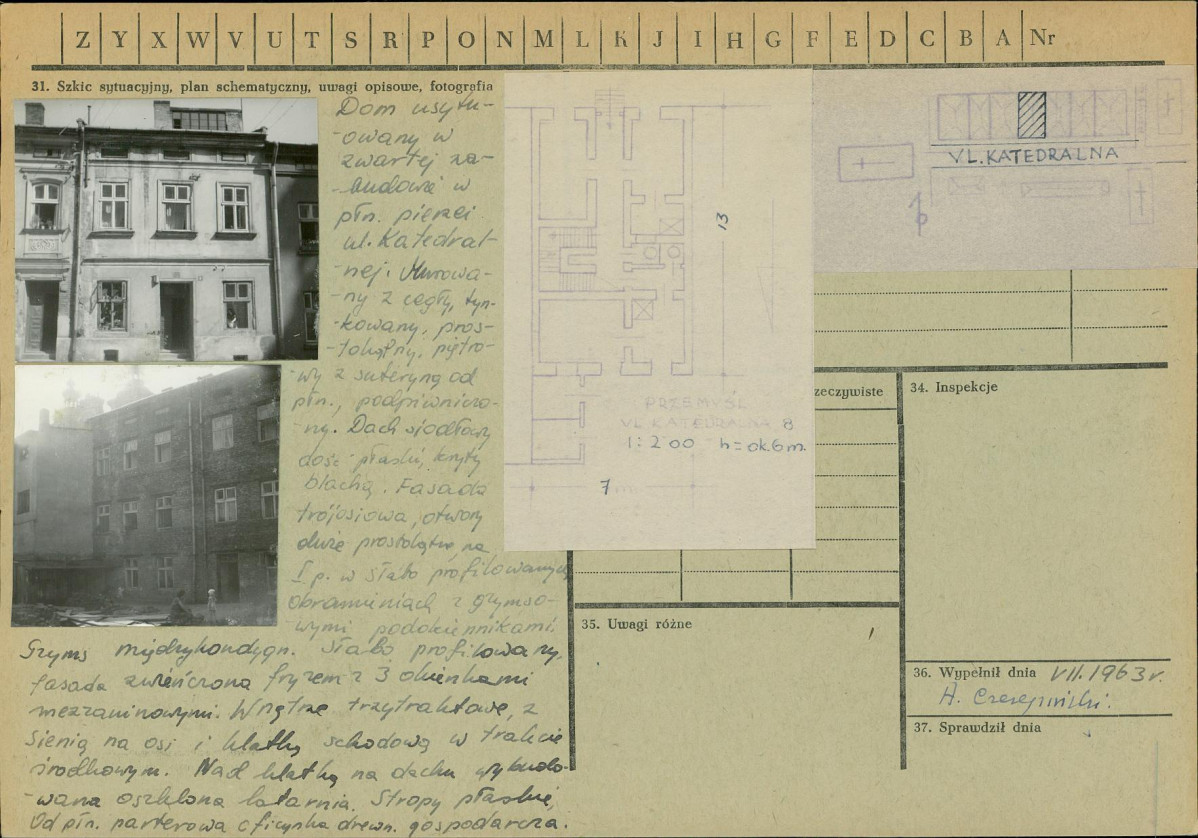 Z Y X W V U T S R P O N M L K J I H G F E D C B A Nr
31. Szkic sytuacyjny, plan schematyczny, uwagi opisowe, fotografia
Dom usytu-
-owany w
zwartej za-
-budowie w
płn. pierzei
ul. Katedral-
-nej. Murowa-
-ny z cegły, tyn-
-kowany, pros-
-tokątny, piętro-
-wy z suteryną od
płn., podpiwniczo-
-ny. Dach siodłowy
dość płaski, kryty
blachą. Fasada
trójosiowa, otwory
duże prostokątne na
I p. w słabo profilowanych
obramieniach z gzymso-
-wymi podokiennikami.
Gzyms międzykondygn. słabo profilowany,
fasada zwieńczona fryzem z 3 okienkami
mezzaninowymi. Wnętrze trzytraktowe, z
sienią na osi i klatką schodową w trakcie
środkowym. Nad klatką na dachu wybudo-
-wana oszklona latarnia. Stropy płaskie,
Od płn. parterowa oficynka drewn. gospodarcza.
13
PRZEMYŚL
UL. KATEDRALNA 8
1:200 h=ok.6m.
7
UL. KATEDRALNA
rzeczywiste
34. Inspekcje
35. Uwagi różne
36. Wypełnił dnia VII.1963r.
37. Sprawdził dnia